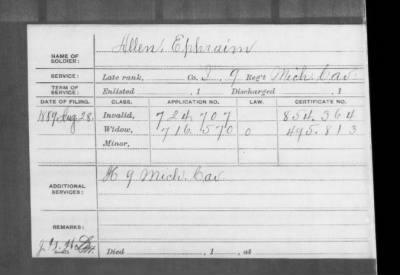 NAME OF SOLDIER: Allen, Ephraim
SERVICE: Late rank, Co. I, 9 Reg't Mich. Cav.
TERM OF SERVICE: Enlisted , 1 Discharged , 1
DATE OF FILING. CLASS. APPLICATION NO. LAW. CERTIFICATE NO.
1889, Aug 28. Invalid, 724.707 854.364
Widow, 716.570 0 495.813
Minor,
ADDITIONAL SERVICES: K 9 Mich. Cav
REMARKS:
Died , 1 , at